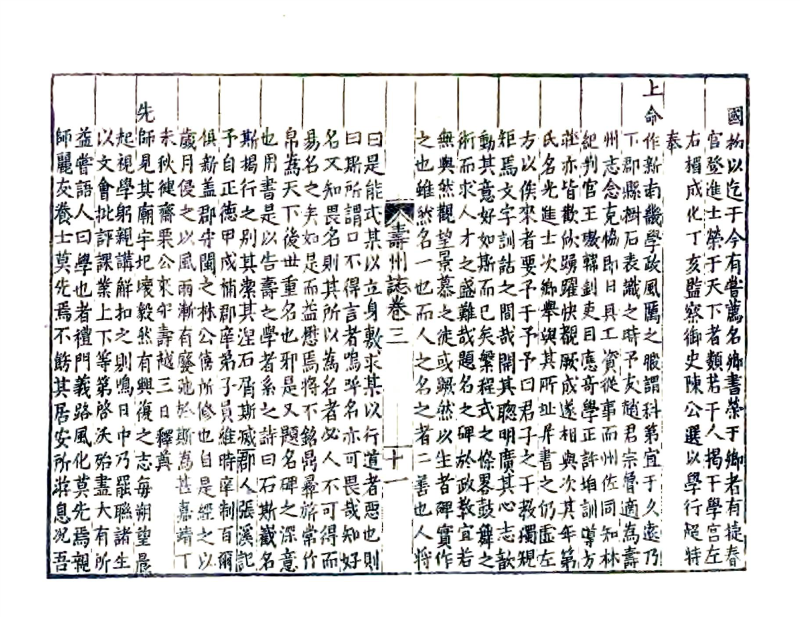 國初以迄于今有嘗薦名鄉書榮于鄉者有捷春
官登進士榮于天下者類若干人揭于學宫左
右楣成化丁亥監察御史陳公選以學行超特
奉
上命作新南畿學政風厲之暇謂科第宜于久遠乃
下郡縣樹石表識之時予友趙君宗曾適為壽
州志念克恊即日具工資從事而州佐同知林
紀判官王璈韓釗吏目應奇學正許塤訓導方
莊亦皆歡欣踴躍快覩厥成遂相與次其年第
氏名先進士次鄉舉與其所址并書之仍虛左
方以俟來者要予于予曰君子之于教獨規
矩焉文字訓詁之間哉開其聰明廣其心志歆
動其意好如斯而已矣繁程式之條畧鼓舞之
術而求人才之盛難哉題名之碑於政教宜若
無與然觀望景慕之徒或躍然以生者碑實作
之也雖然名一也而人之名之者二善也人將
壽州誌卷三
十一
曰是能式某以立身敷求某以行道者惡也則
曰斯所謂口不得言者嗚呼名亦可畏哉知好
名又知畏名則其所以為名者必人不可得而
易名之矣如是而益懋焉將不銘鼎彞旂常作
帛為天下後世重名也邪是又題名碑之深意
也用書是以告壽之學者系之詩曰石斯巖名
斯揭行之别其潔其涅石屑斯威郡人張溪記
予自正德甲戌補郡庠弟子員維時庠制百爾
俱新盖郡守閩之林公僖所修也自是經之以
歲月侵之以風雨漸有廢弛於斯為甚嘉靖丁
未秋健齋栗公來守壽越三日釋奠
先師見其廟宇圮壞毅然有興復之志每朔望晨
起視學躬親講觧扣之則鳴日中乃羅聮諸生
以文會批評課業上下等第啓沃殆盡大有所
益嘗語人曰學也者禮門義路風化莫先焉親
師麗友養士莫先焉不飭其居安所游息况吾